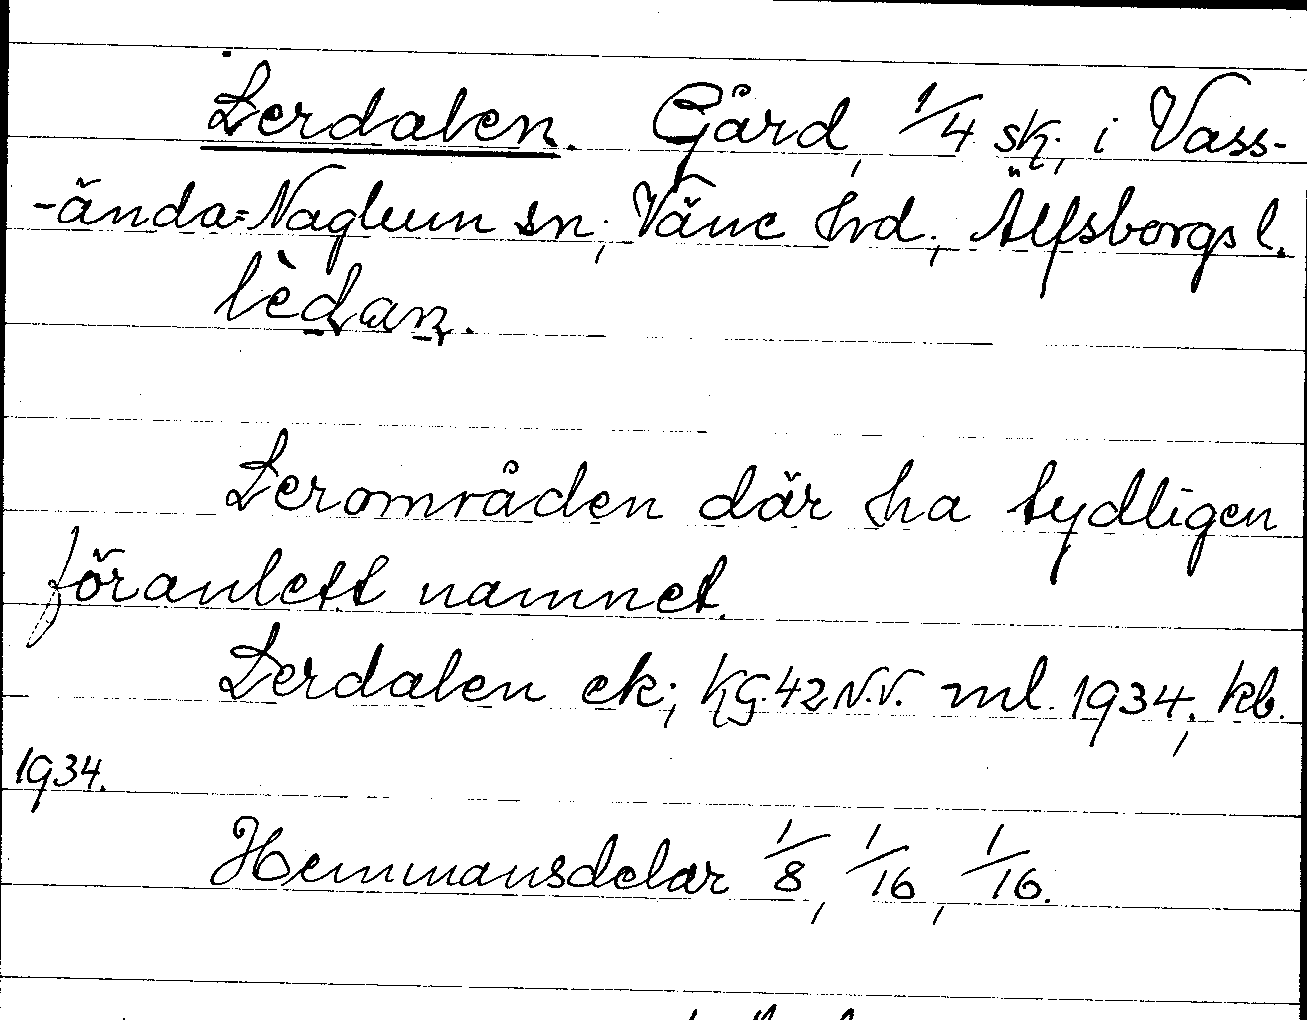 Lerdalen. Gård, 1/4 sk., i Vass-
-ända-Naglum sn, Väne hd, Älfsborgs l.
lèdan.
Lerområden där ha tydligen
föranlett namnet.
Lerdalen ek; KG.42 N.V. ml. 1934; kb.
1934.
Hemmansdelar 1/8, 1/16, 1/16.